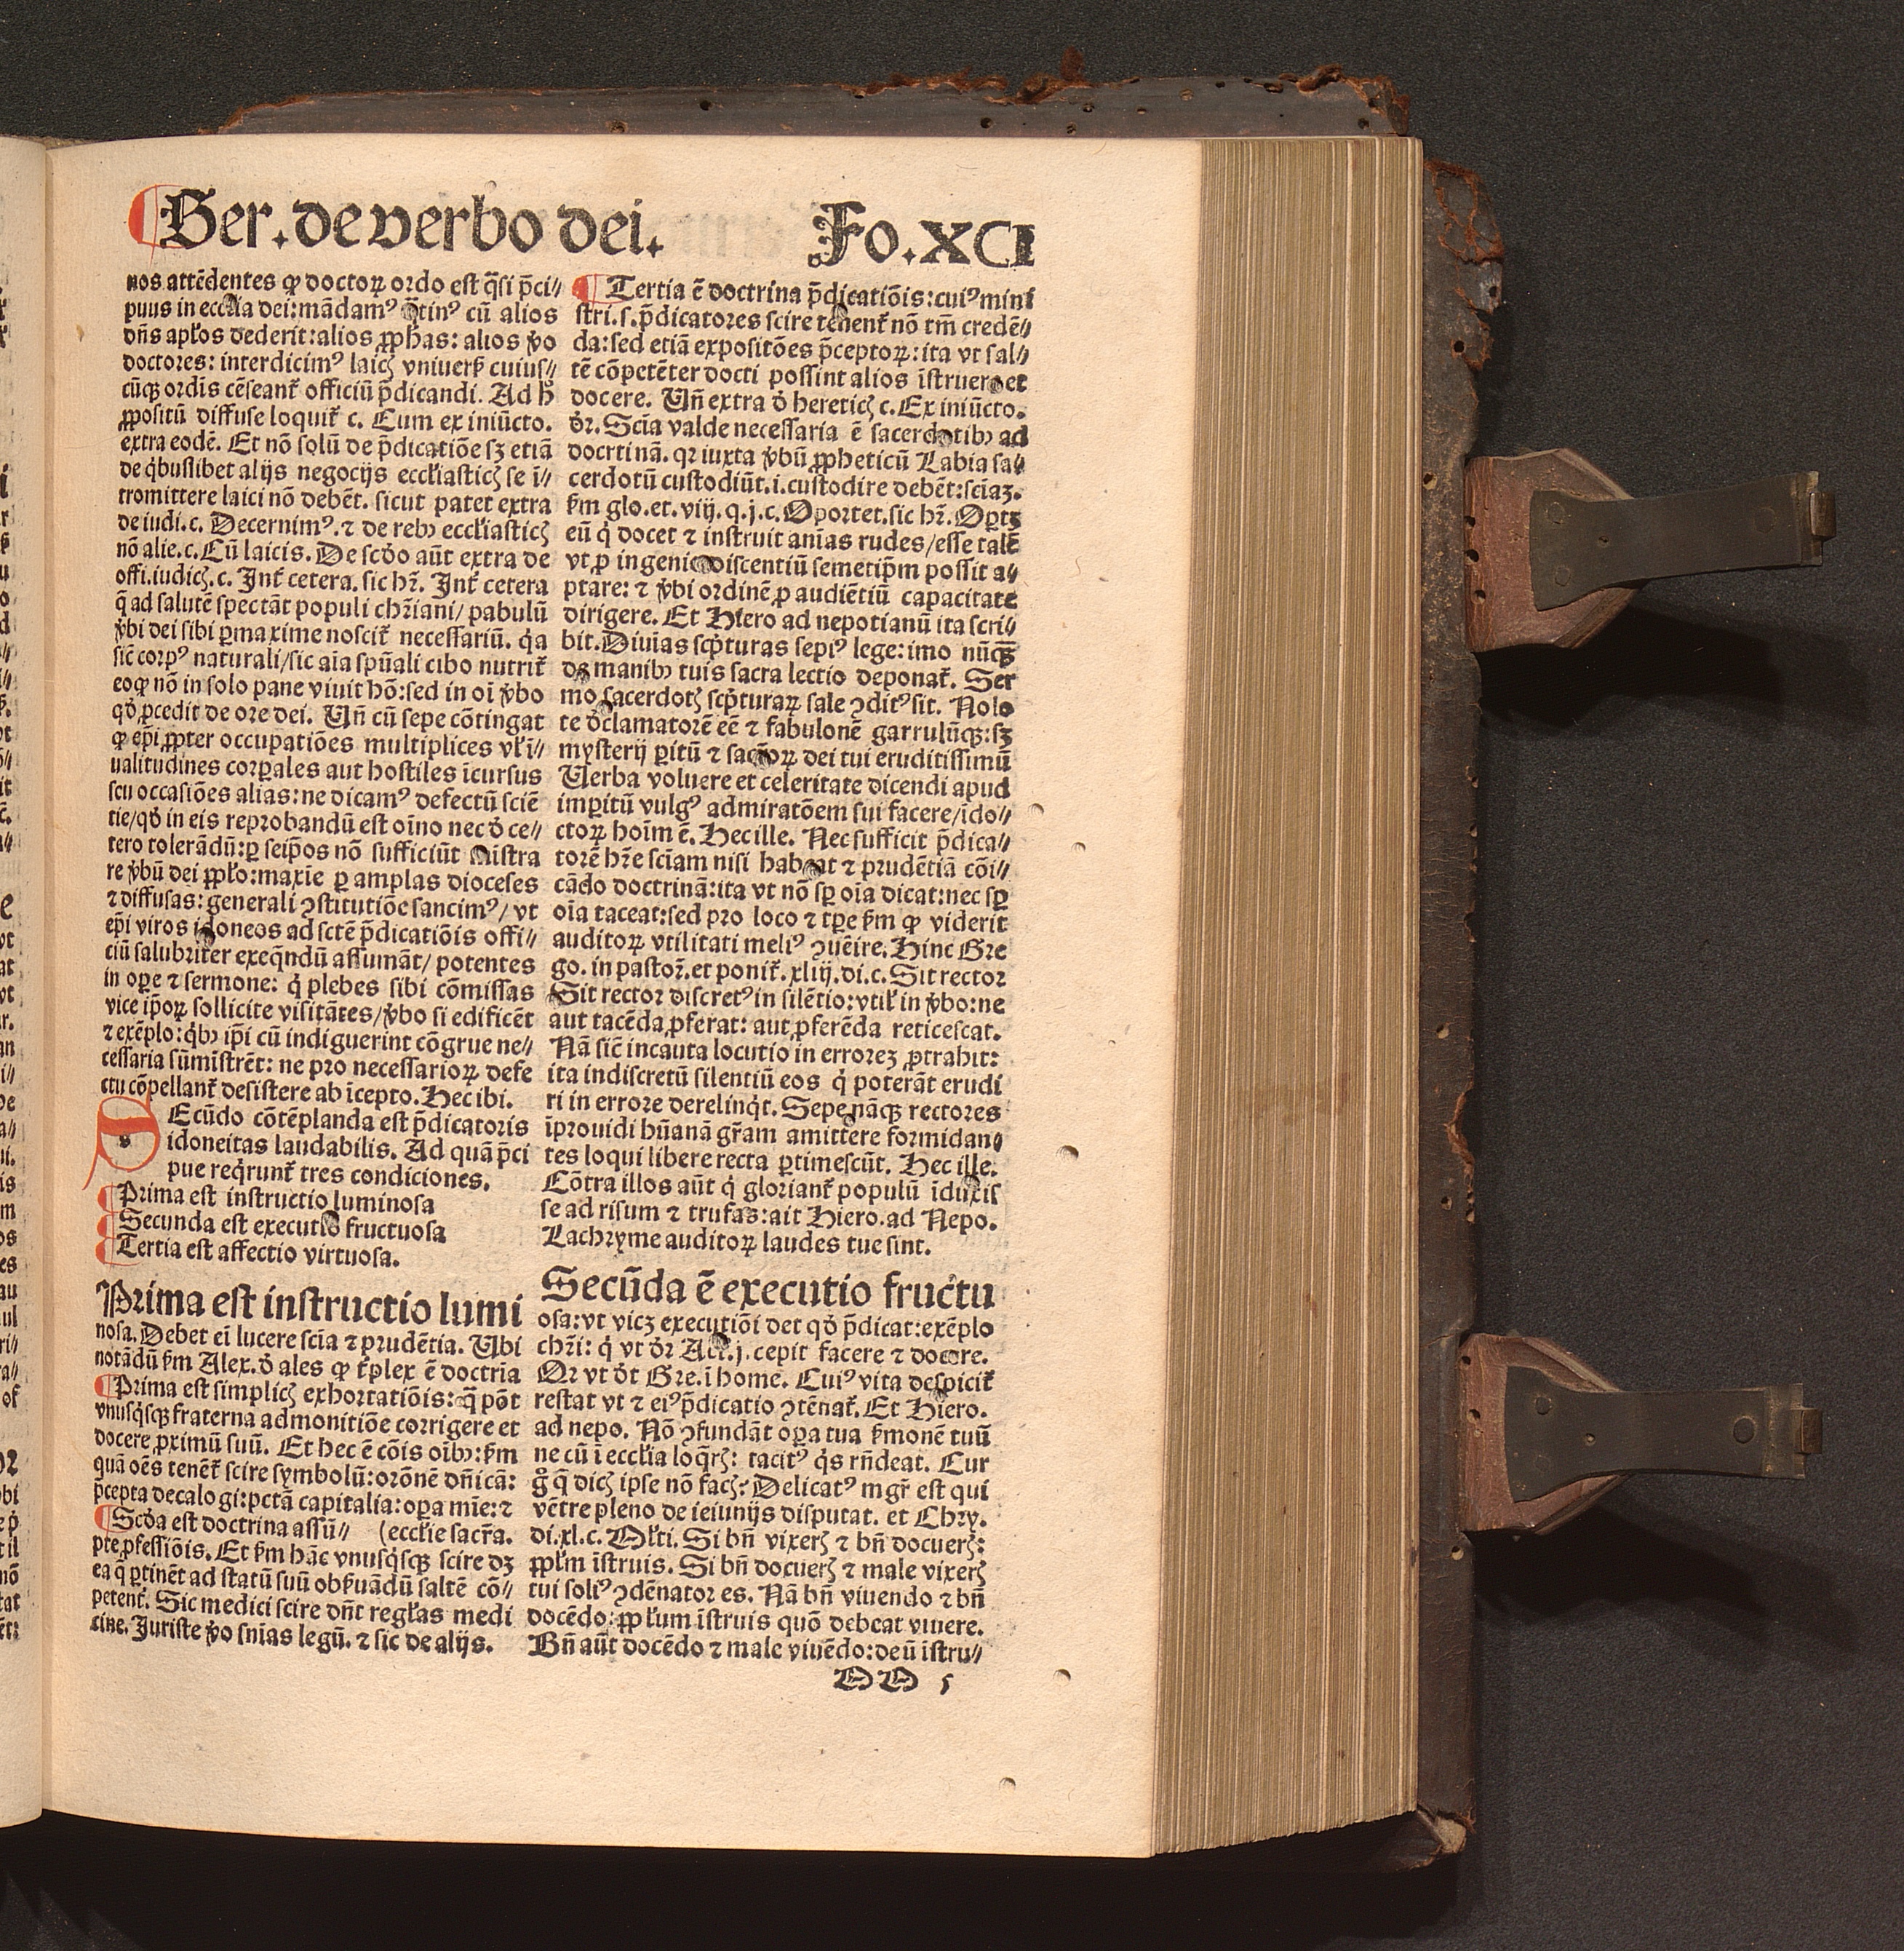 Ser. de verbo dei. Fo. XCI
nos attēdentes ꝙ doctoꝝ ordo est q̄si p̄ci⸗
puus in ecclia dei: mādamꝰ q̄tinꝰ cū alios
dn̄s apl̄os dederit: alios ꝓphas: alios v̄o
doctores: interdicimꝰ laicꝭ vniuers̄ cuius⸗
cūqꝫ ordīs cēseant᷑ officiū p̄dicandi. Ad h̄
ꝓpositū diffuse loquit᷑ c. Cum ex iniūcto.
extra eodē. Et nō solū de p̄dicatiōe sꝫ etiā
de q̇buslibet alijs negocijs eccl̄iasticꝭ se ī⸗
tromittere laici nō debēt. sicut patet extra
de iudi. c. Decernimꝰ. ⁊ de rebꝰ eccl̄iasticꝭ
nō alie. c. Cū laicis. De scd̄o aūt extra de
offi. iudicꝭ. c. Int᷑ cetera. sic hr̄. Int᷑ cetera
q̄ ad salutē spectāt populi chr̄iani/ pabulū
v̄bi dei sibi ꝑmaxime noscit᷑ necessariū. q̇a
sic̄ corpꝰ naturali/ sic aīa spūali cibo nutrit᷑
eoꝙ nō in solo pane viuit hō: sed in oī v̄bo
qd̄ ꝓcedit de ore dei. Un̄ cū sepe cōtingat
ꝙ ep̄i ꝓpter occupatiōes multiplices vl̄ ī⸗
ualitudines corꝑales aut hostiles īcursus
seu occasiōes alias: ne dicamꝰ defectū sciē
tie/ qd̄ in eis reprobandū est oīno nec d̄ ce⸗
tero tolerādū: ꝑ seip̄os nō sufficiūt mīstra
re v̄bū dei ꝓpl̄o: maxīe ꝑ amplas dioceses
⁊ diffusas: generali ꝯstitutiōe sancimꝰ/ vt
ep̄i viros idoneos ad sctē p̄dicatiōis offi⸗
ciū salubriter exeq̄ndū assumāt/ potentes
in oꝑe ⁊ sermone: q̇ plebes sibi cōmissas
vice ip̄oꝝ sollicite visitātes/ v̄bo si edificēt
⁊ exēplo: q̇bꝰ ip̄i cū indiguerint cōgrue ne⸗
cessaria sūmīstrēt: ne pro necessarioꝝ defe
ctu cōpellant᷑ desistere ab īcepto. Hec ibi.
SEcūdo cōtēplanda est p̄dicatoris
idoneitas laudabilis. Ad quā p̄ci
pue req̇runt᷑ tres condiciones.
¶ Prima est instructio luminosa
¶ Secunda est executio fructuosa
¶ Tertia est affectio virtuosa.
Prima est instructio lumi
nosa. Debet eī lucere scīa ⁊ prudētia. Ubi
notādū s̄m Alex. d̄ ales ꝙ t᷑plex ē doctrīa
¶ Prima est simplicꝭ exhortatiōis: q̄ pōt
vnusq̇sqꝫ fraterna admonitiōe corrigere et
docere ꝓximū suū. Et hec ē cōis oībꝰ: s̄m
quā oēs tenēt᷑ scire symbolū: orōnē dn̄icā:
p̄cepta decalogi: pctā capitalia: oꝑa mīe: ⁊
¶ Scd̄a est doctrina assū⸗ (eccl̄ie sacr̄a.
pte ꝓfessiōis. Et s̄m hāc vnusq̇sqꝫ scire dꝫ
ea q̇ ꝑtinēt ad statū suū obs̄uādū saltē cō⸗
petent᷑. Sic medici scire dn̄t regl̄as medi
cine. Juriste v̄o sn̄ias legū. ⁊ sic de alijs.
¶ Tertia ē doctrina p̄dicatiōis: cuiꝰ mini
stri. s. p̄dicatores scire tenent᷑ nō tm̄ credē⸗
da: sed etiā expositōes p̄ceptoꝝ: ita vt sal⸗
tē cōpetēter docti possint alios īstruere et
docere. Un̄ extra d̄ hereticꝭ c. Ex iniūcto.
dr̄. Scīa valde necessaria ē sacerdotibꝰ ad
docrtinā. qꝛ iuxta v̄bū ꝓpheticū Labia sa⸗
cerdotū custodiūt. i. custodire debēt: scīaꝫ.
s̄m glo. et. viij. q. j. c. Oportet. sic hr̄. Oꝑtꝫ
eū q̇ docet ⁊ instruit anīas rudes/ esse talē
vt ꝓ ingenio discentiū semetip̄m possit a⸗
ptare: ⁊ v̄bi ordinē ꝓ audiētiū capacitate
dirigere. Et Hiero ad nepotianū ita scri⸗
bit. Diuīas scp̄turas sepiꝰ lege: imo nūqꝫ̄
de manibꝰ tuis sacra lectio deponat᷑. Ser
mo sacerdotꝭ scp̄turaꝝ sale ꝯditꝰ sit. Nolo
te d̄clamatorē eē ⁊ fabulonē garrulūqꝫ: sꝫ
mysterij ꝑitū ⁊ sacr̄oꝝ dei tui eruditissimū
Uerba voluere et celeritate dicendi apud
imꝑitū vulgꝰ admiratōem sui facere/ īdo⸗
ctoꝝ hoīm ē. Hec ille. Nec sufficit p̄dica⸗
torē hr̄e scīam nisi habeat ⁊ prudētiā cōi⸗
cādo doctrinā: ita vt nō sꝑ oīa dicat: nec sꝑ
oīa taceat: sed pro loco ⁊ tꝑe s̄m ꝙ viderit
auditoꝝ vtilitati meliꝰ ꝯuēire. Hinc Gre
go. in pastor̄. et ponit᷑. xliij. di. c. Sit rector
Sit rector discretꝰ in silētio: vtil̄ in v̄bo: ne
aut tacēda ꝓferat: aut ꝓferēda reticescat.
Nā sic̄ incauta locutio in erroreꝫ ꝓtrahit:
ita indiscretū silentiū eos q̇ poterāt erudi
ri in errore derelinq̇t. Sepe nāqꝫ rectores
īprouidi hūanā gr̄am amittere formidan⸗
tes loqui libere recta ꝑtimescūt. Hec ille.
Cōtra illos aūt q̇ gloriant᷑ populū īduxis
se ad risum ⁊ trufas: ait Hiero. ad Nepo.
Lachryme auditoꝝ laudes tue sint.
Secūda ē executio fructu
osa: vt vicꝫ executiōi det qd̄ p̄dicat: exēplo
chr̄i: q̇ vt dr̄ Act. j. cepit facere ⁊ docere.
Qꝛ vt dt̄ Gre. ī home. Cuiꝰ vita despicit᷑
restat vt ⁊ eiꝰ p̄dicatio ꝯtēnat᷑. Et Hiero.
ad nepo. Nō ꝯfundāt oꝑa tua s̄monē tuū
ne cū ī eccl̄ia loq̄rꝭ: tacitꝰ q̇s rn̄deat. Cur
g̊ q̄ dicꝭ ipse nō facꝭ: Delicatꝰ mgr̄ est qui
vētre pleno de ieiunijs disputat. et Chry.
di. xl. c. Ml̄ti. Si bn̄ vixerꝭ ⁊ bn̄ docuerꝭ:
ꝓpl̄m īstruis. Si bn̄ docuerꝭ ⁊ male vixerꝭ
tui soliꝰ ꝯdēnator es. Nā bn̄ viuendo ⁊ bn̄
docēdo: ꝓpl̄um īstruis quō debeat viuere.
Bn̄ aūt docēdo ⁊ male viuēdo: deū īstru⸗
OO 5